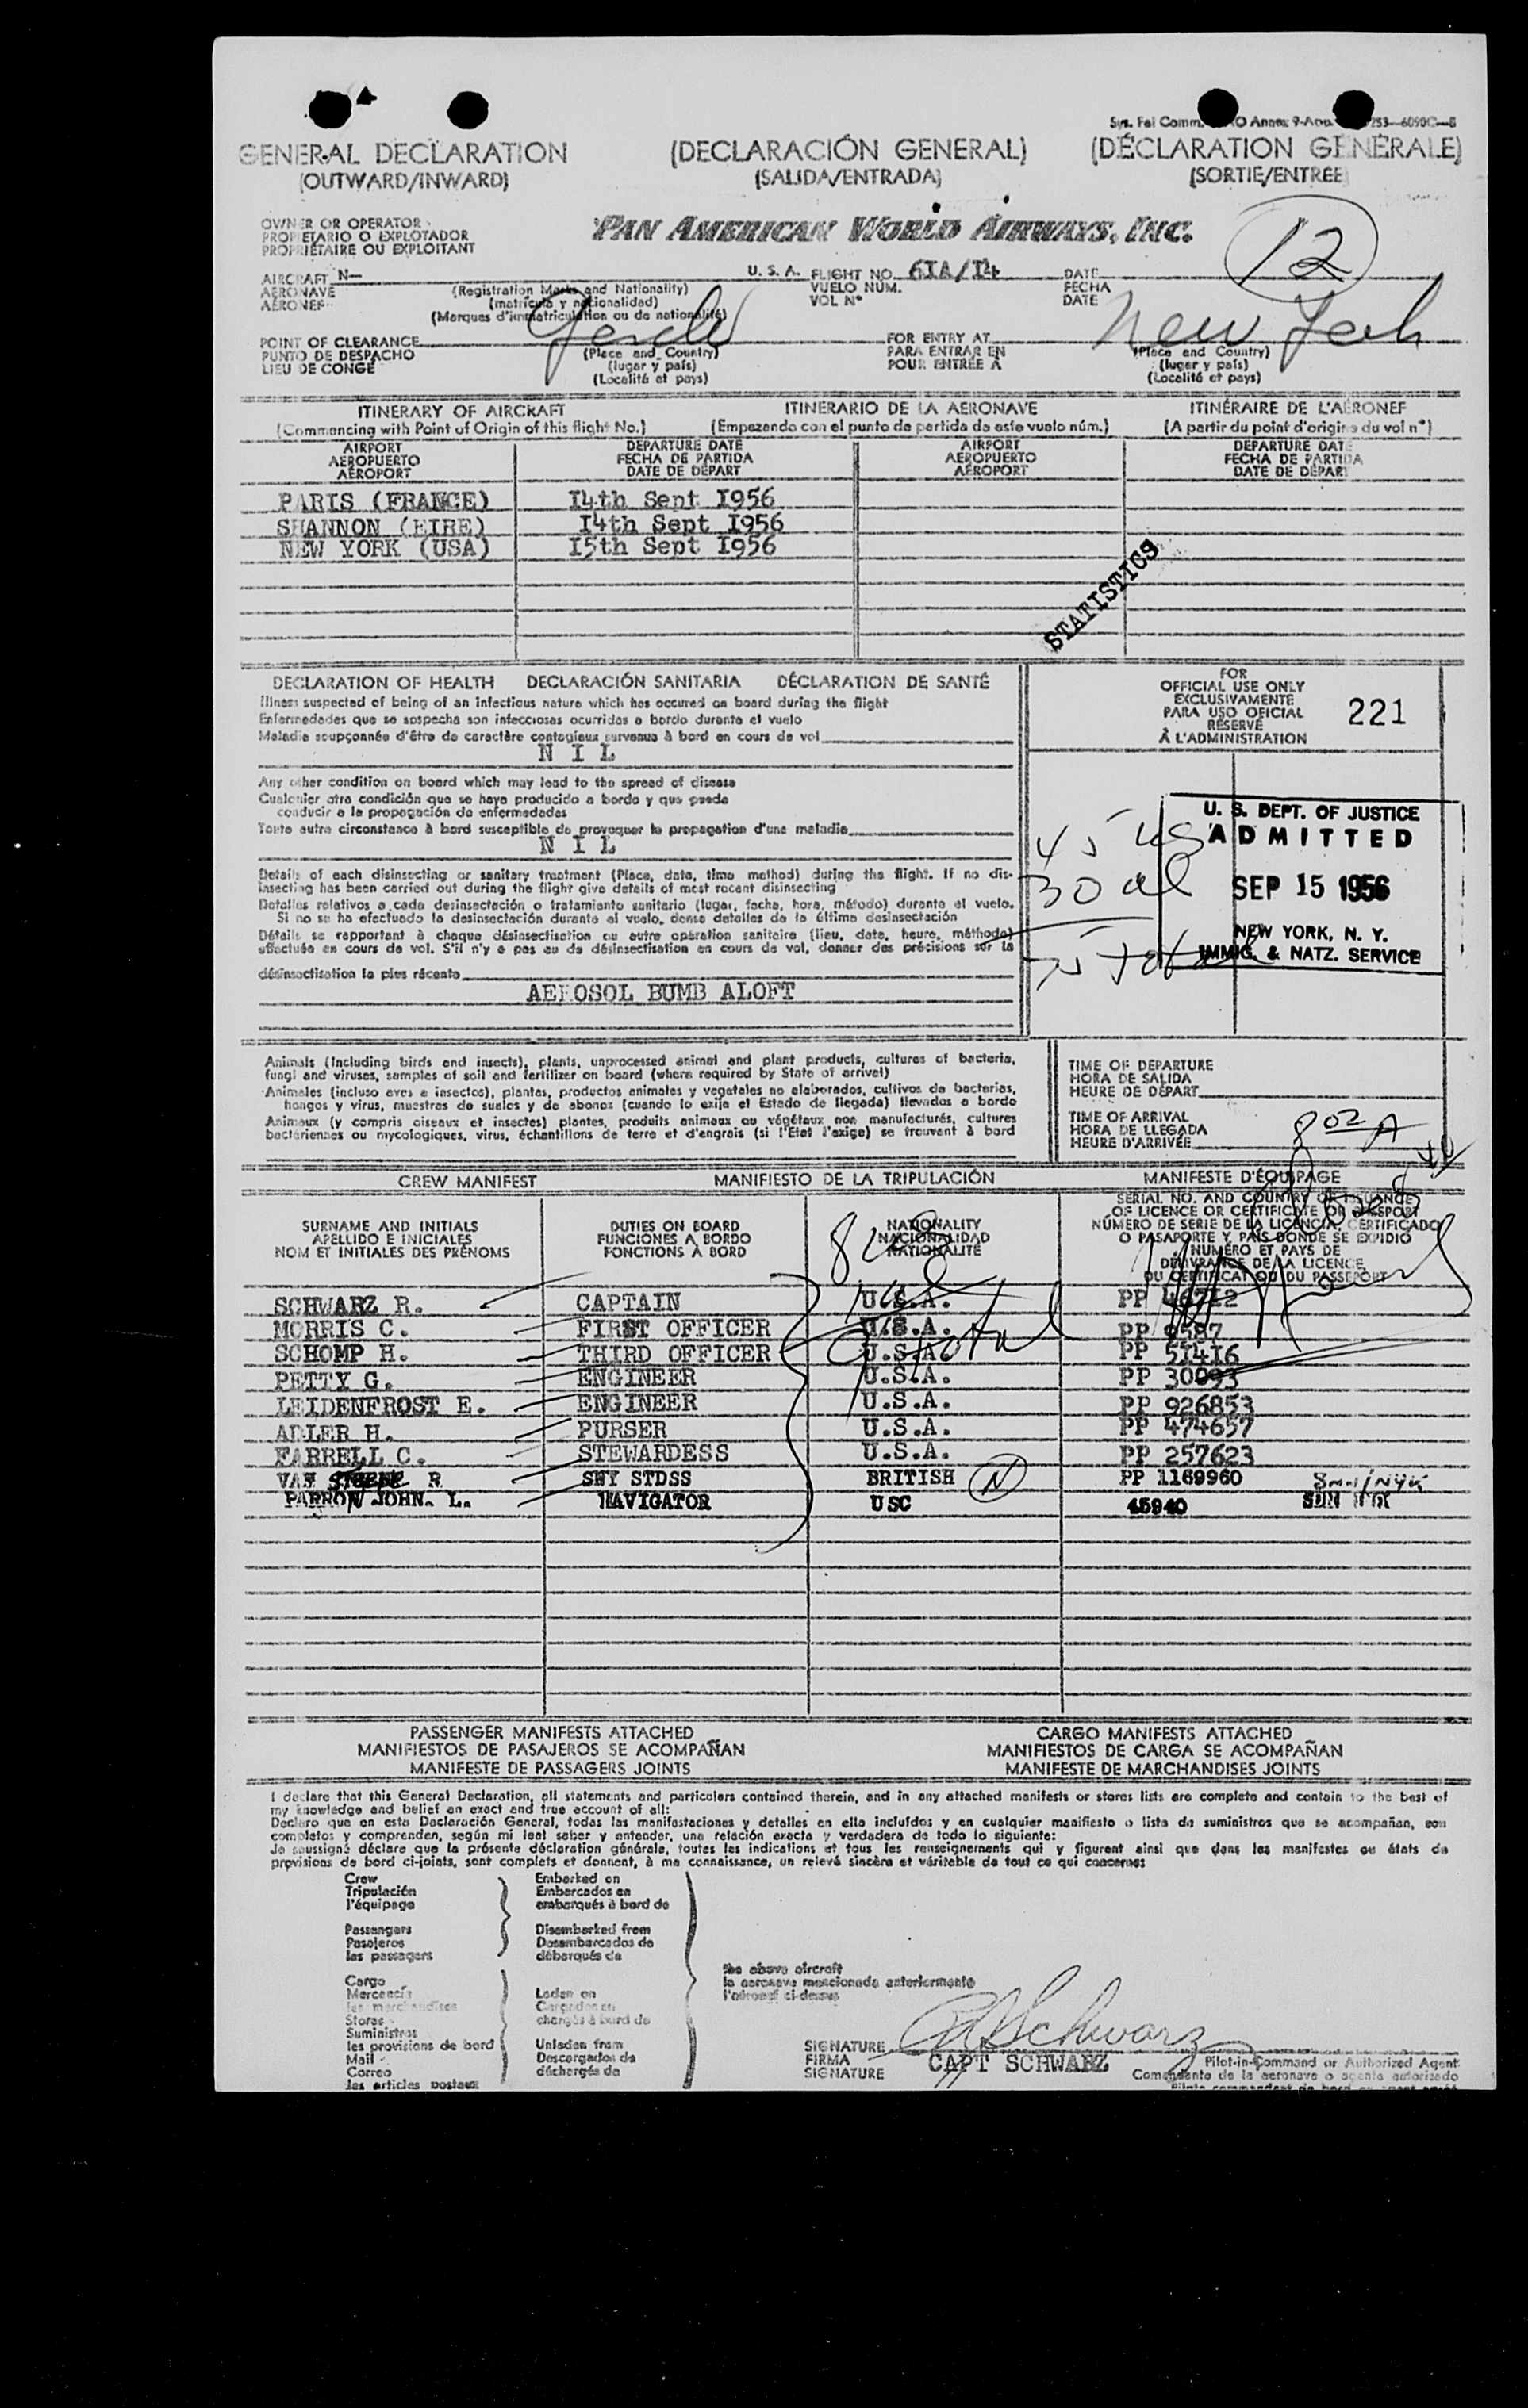 GENERAL DECLARATION (DECLARACIÓN GENERAL) (DÉCLARATION GÉNÉRALE)
(OUTWARD/INWARD) (SALIDA/ENTRADA) (SORTIE/ENTRÉE)
OWNER OR OPERATOR
PROPIETARIO O EXPLOTADOR
PROPRIÉTAIRE OU EXPLOITANT
PAN AMERICAN WORLD AIRWAYS, INC.
12
AIRCRAFT N— U. S. A. FLIGHT NO. 6IA/I4 DATE
AERONAVE (Registration Marks and Nationality) VUELO NÚM. FECHA
AÉRONEF (matrícula y nacionalidad) VOL Nº DATE
(Marques d'immatriculation ou de nationalité)
POINT OF CLEARANCE FOR ENTRY AT New York
PUNTO DE DESPACHO (Place and Country) PARA ENTRAR EN (Place and Country)
LIEU DE CONGÉ (lugar y país) POUR ENTRÉE À (lugar y país)
(Localité et pays) (Localité et pays)
ITINERARY OF AIRCRAFT ITINERARIO DE LA AERONAVE ITINÉRAIRE DE L'AÉRONEF
(Commencing with Point of Origin of this flight No.) (Empezando con el punto de partida de este vuelo núm.) (A partir du point d'origine du vol nº)
AIRPORT DEPARTURE DATE AIRPORT DEPARTURE DATE
AEROPUERTO FECHA DE PARTIDA AEROPUERTO FECHA DE PARTIDA
AÉROPORT DATE DE DÉPART AÉROPORT DATE DE DÉPART
PARIS (FRANCE) I4th Sept I956
SHANNON (EIRE) I4th Sept I956
NEW YORK (USA) I5th Sept I956
STATISTICS
DECLARATION OF HEALTH DECLARACIÓN SANITARIA DÉCLARATION DE SANTÉ
Illness suspected of being of an infectious nature which has occured on board during the flight
Enfermedades que se sospecha son infecciosas ocurridas a bordo durante el vuelo
Maladie soupçonnée d'être de caractère contagieux survenue à bord en cours de vol
N I L
Any other condition on board which may lead to the spread of disease
Cualquier otra condición que se haya producido a bordo y que pueda
conducir a la propagación de enfermedades
Toute autre circonstance à bord susceptible de provoquer la propagation d'une maladie
N I L
Details of each disinsecting or sanitary treatment (Place, date, time method) during the flight. If no dis-
insecting has been carried out during the flight give details of most recent disinsecting
Detalles relativos a cada desinsectación o tratamiento sanitario (lugar, fecha, hora, método) durante el vuelo.
Si no se ha efectuado la desinsectación durante el vuelo, dense detalles de la última desinsectación
Détails se rapportant à chaque désinsectisation ou autre opération sanitaire (lieu, date, heure, méthode)
effectuée en cours de vol. S'il n'y a pas eu de désinsectisation en cours de vol, donner des précisions sur la
désinsectisation la plus récente
AEROSOL BUMB ALOFT
FOR
OFFICIAL USE ONLY
EXCLUSIVAMENTE
PARA USO OFICIAL
RÉSERVÉ
À L'ADMINISTRATION
221
45 us
30 al
75 total
U. S. DEPT. OF JUSTICE
ADMITTED
SEP 15 1956
NEW YORK, N. Y.
IMMIG. & NATZ. SERVICE
Animals (including birds and insects), plants, unprocessed animal and plant products, cultures of bacteria,
fungi and viruses, samples of soil and fertilizer on board (where required by State of arrival)
Animales (incluso aves e insectos), plantas, productos animales y vegetales no elaborados, cultivos de bacterias,
hongos y virus, muestras de suelos y de abonos (cuando lo exija el Estado de llegada) llevados a bordo
Animaux (y compris oiseaux et insectes) plantes, produits animaux ou végétaux non manufacturés, cultures
bactériennes ou mycologiques, virus, échantillons de terre et d'engrais (si l'Etat l'exige) se trouvant à bord
TIME OF DEPARTURE
HORA DE SALIDA
HEURE DE DÉPART
TIME OF ARRIVAL
HORA DE LLEGADA
HEURE D'ARRIVÉE
802 A
CREW MANIFEST MANIFIESTO DE LA TRIPULACIÓN MANIFESTE D'ÉQUIPAGE
SURNAME AND INITIALS DUTIES ON BOARD NATIONALITY
APELLIDO E INICIALES FUNCIONES A BORDO NACIONALIDAD
NOM ET INITIALES DES PRÉNOMS FONCTIONS À BORD NATIONALITÉ
SERIAL NO. AND COUNTRY OF ISSUANCE
OF LICENCE OR CERTIFICATE OR PASSPORT
NÚMERO DE SERIE DE LA LICENCIA, CERTIFICADO
O PASAPORTE Y PAÍS DONDE SE EXPIDIÓ
NUMÉRO ET PAYS DE
DÉLIVRANCE DE LA LICENCE
DU CERTIFICAT OU DU PASSEPORT
SCHWARZ R. CAPTAIN U.S.A. PP 46712
MORRIS C. FIRST OFFICER U.S.A. PP 9587
SCHOMP H. THIRD OFFICER U.S.A. PP 5I4I6
PETTY G. ENGINEER U.S.A. PP 30093
LEIDENFROST E. ENGINEER U.S.A. PP 926853
ADLER H. PURSER U.S.A. PP 474657
FARRELL C. STEWARDESS U.S.A. PP 257623
VAN R SNY STDSS BRITISH N PP 1169960
PARRON JOHN. L. NAVIGATOR USC 45940
9 total
PASSENGER MANIFESTS ATTACHED CARGO MANIFESTS ATTACHED
MANIFIESTOS DE PASAJEROS SE ACOMPAÑAN MANIFIESTOS DE CARGA SE ACOMPAÑAN
MANIFESTE DE PASSAGERS JOINTS MANIFESTE DE MARCHANDISES JOINTS
I declare that this General Declaration, all statements and particulars contained therein, and in any attached manifests or stores lists are complete and contain to the best of
my knowledge and belief an exact and true account of all:
Declaro que en esta Declaración General, todas las manifestaciones y detalles en ella incluídos y en cualquier manifiesto o lista de suministros que se acompañan, son
completos y comprenden, según mi leal saber y entender, una relación exacta y verdadera de todo lo siguiente:
Je soussigné déclare que la présente déclaration générale, toutes les indications et tous les renseignements qui y figurent ainsi que dans les manifestes ou états de
provisions de bord ci-joints, sont complets et donnent, à ma connaissance, un relevé sincère et véritable de tout ce qui concerne:
Crew Embarked on
Tripulación Embarcados en
l'équipage embarqués à bord de
Passengers Disembarked from
Pasajeros Desembarcados de
les passagers débarqués de
Cargo the above aircraft
Mercancía Laden on la aeronave mencionada anteriormente
les marchandises Cargados en l'aéronef ci-dessus
Stores chargés à bord de
Suministros
les provisions de bord Unladen from
Mail Descargados de
Correo déchargés de
les articles postaux
SIGNATURE Schwarz
FIRMA CAPT SCHWARZ Pilot-in-Command or Authorized Agent
SIGNATURE Comandante de la aeronave o agente autorizado